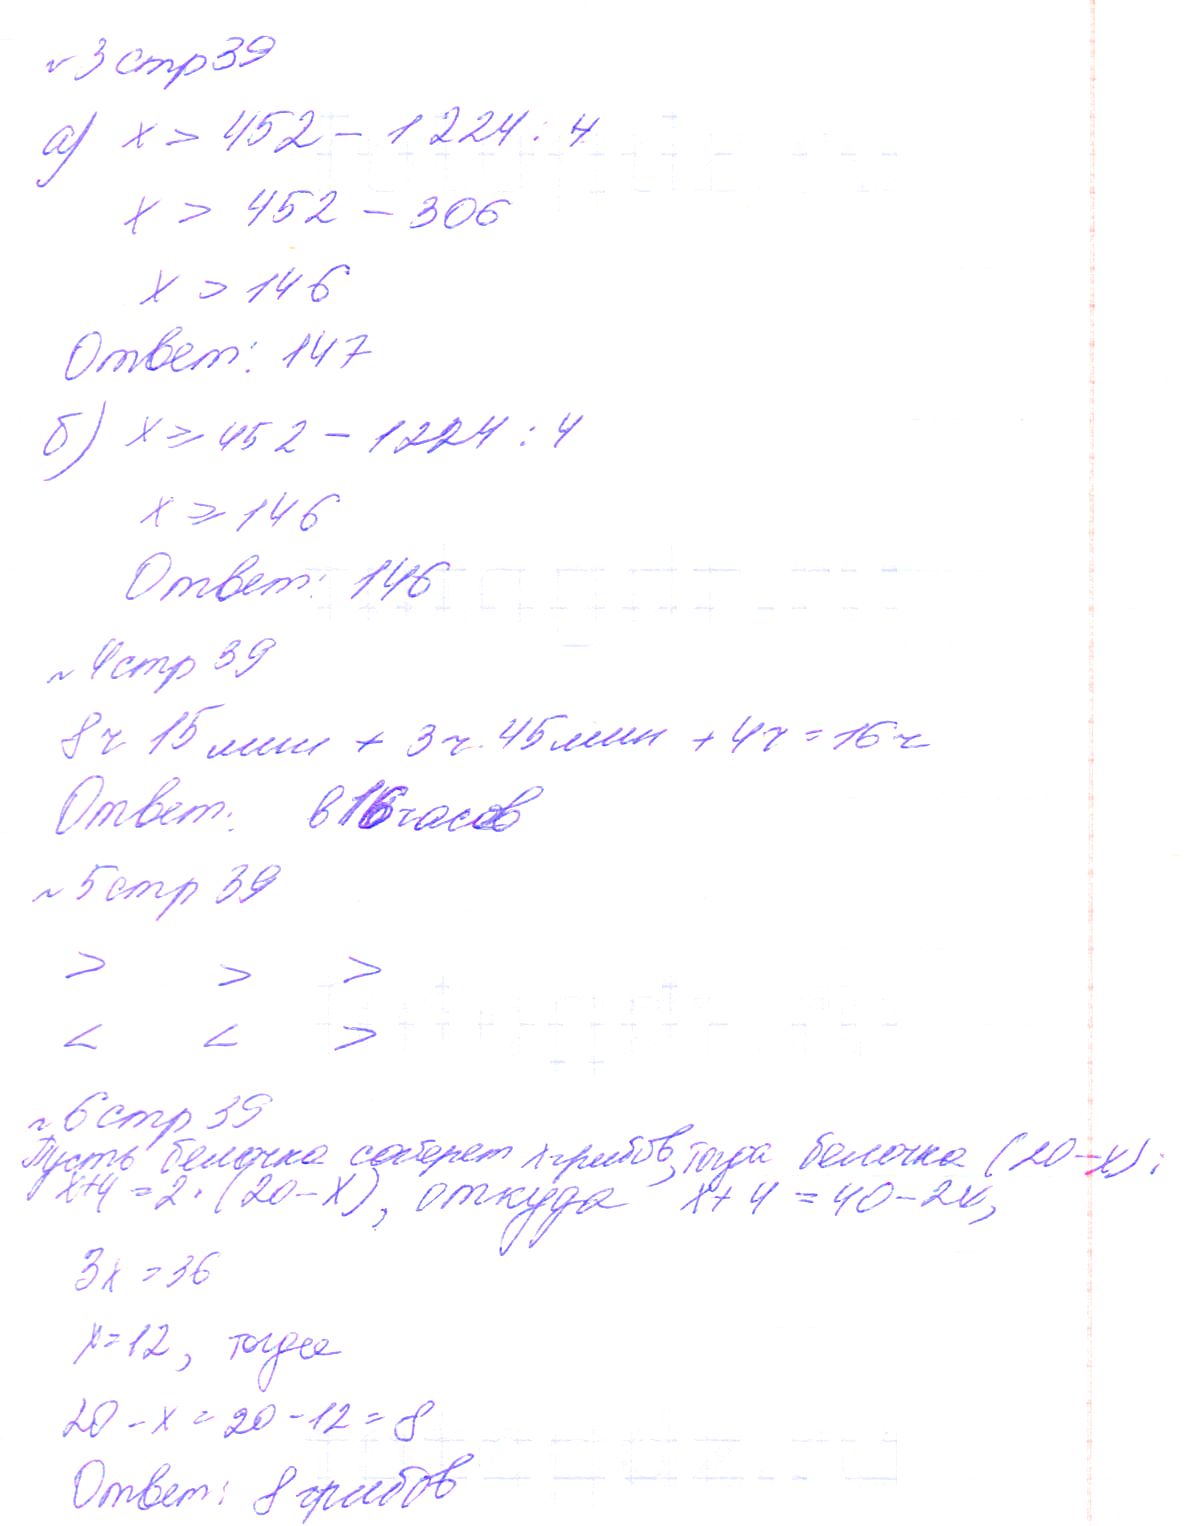 №3 стр 39
а) x > 452 - 1224 : 4
x > 452 - 306
x > 146
Ответ: 147
б) x ≥ 452 - 1224 : 4
x ≥ 146
Ответ: 146
№4 стр 39
8ч 15 мин + 3ч. 45 мин + 4ч = 16ч
Ответ: в 16 часов
№5 стр 39
> > >
< < >
№6 стр 39
Пусть белочка соберет x грибов, тогда белочка (20-x);
x+4 = 2·(20-x), откуда x+4 = 40-2x,
3x = 36
x=12, тогда
20-x = 20-12 = 8
Ответ: 8 грибов